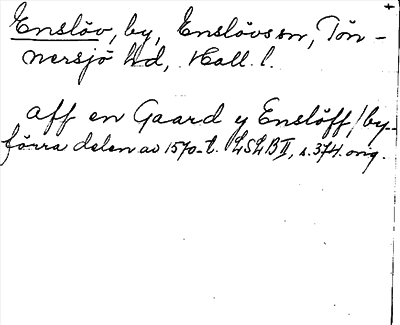 Enslöv, by, Enslövs sn, Tön-
nersjö hd, Hall. l.
aff en Gaard y Enslöff / by..
förra delen av 1570-t. LSLB II, s. 374. orig.